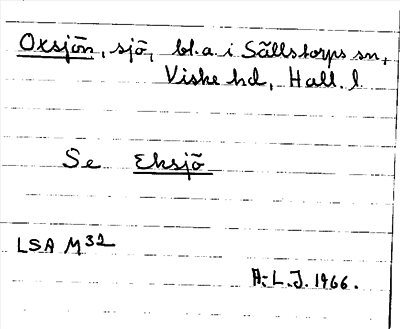 Oxsjön, sjö, bl.a. i Sällstorps sn,
Viske hd, Hall. l.
Se Eksjö
LSA M32
A.-L.J. 1966.